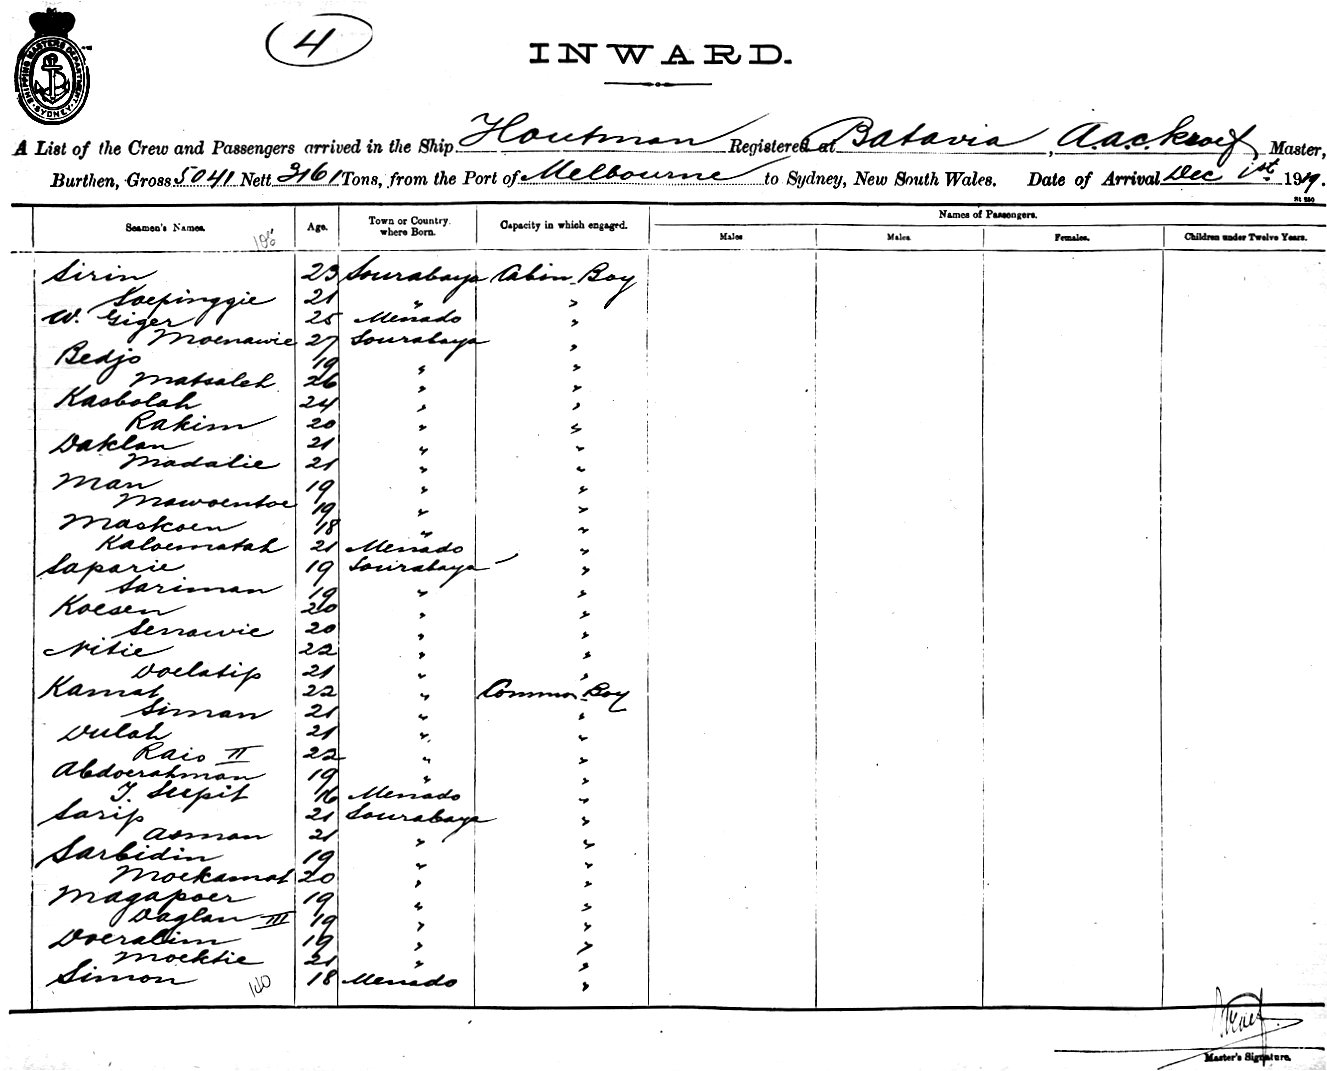 4
INWARD.
SHIPPING MASTERS DEPARTMENT SYDNEY
A List of the Crew and Passengers arrived in the Ship Houtman Registered at Batavia, A.A.C. Kroef, Master,
Burthen, Gross 5041 Nett 3161 Tons, from the Port of Melbourne to Sydney, New South Wales. Date of Arrival Dec 1st 1919.
Seamen's Names. Age. Town or Country where Born. Capacity in which engaged. Names of Passengers.
Males Males Females. Children under Twelve Years.
Sirin 23 Sourabaya Cabin Boy
Soepinggie 21 " "
W. Giger 25 Menado "
Moenawie 27 Sourabaya "
Bedjo 19 " "
Matsaleh 26 " "
Kasbolah 24 " "
Rakim 20 " "
Daklan 21 " "
Madalie 21 " "
Man 19 " "
Mawoentoe 19 " "
Maskoen 18 " "
Kaloematah 21 Menado "
Saparie 19 Sourabaya "
Sariman 19 " "
Koesen 20 " "
Senawie 20 " "
Nitie 22 " "
Doelatip 21 " "
Kamat 22 " Common Boy
Siman 21 " "
Dulah 21 " "
Rais II 22 " "
Abdoerahman 19 " "
J. Seepit 16 Menado "
Sarip 21 Sourabaya "
Asman 21 " "
Sarbidin 19 " "
Moekamat 20 " "
Magapoer 19 " "
Daglan III 19 " "
Doeralim 19 " "
Moektie 21 " "
Simon 18 Menado "
140
Master's Signature.